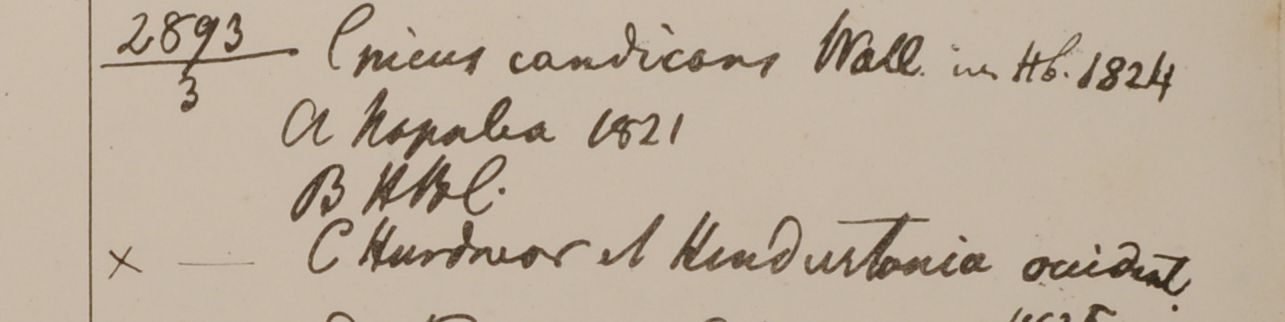 2893/3 Cnicus candicans Wall. in Hb. 1824
A Napalia 1821
B HBC.
× — C Hurdwar et Hindustania occident.
1825